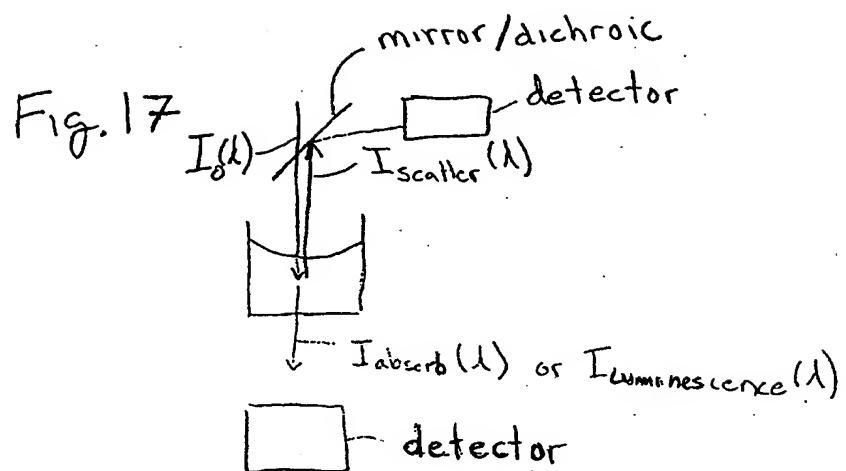 mirror/dichroic
detector
Fig. 17
I₀(λ)
I scatter (λ)
I absorb (λ) or I Luminescence (λ)
detector